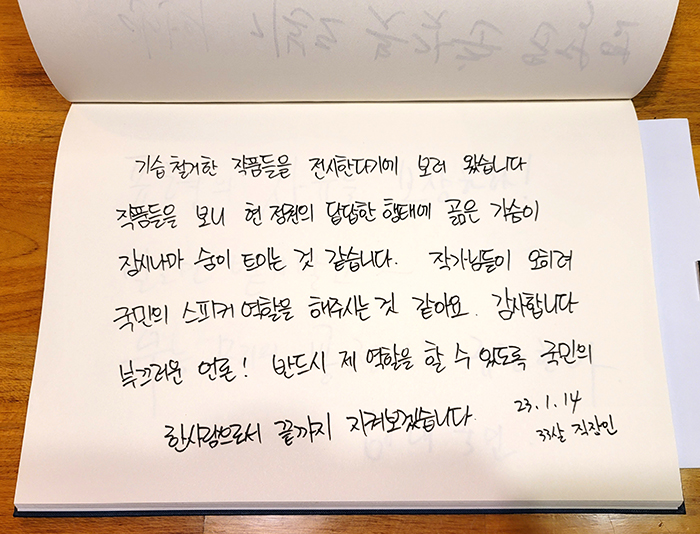 기습철거한 작품들을 전시한다기에 보러 왔습니다
작품들을 보니 현 정권의 답답한 행태에 곪은 가슴이
잠시나마 숨이 트이는 것 같습니다. 작가님들이 오히려
국민의 스피커 역할을 해주시는 것 같아요. 감사합니다
부끄러운 언론! 반드시 제 역할을 할 수 있도록 국민의
한사람으로서 끝까지 지켜보겠습니다.
23.1.14
33살 직장인